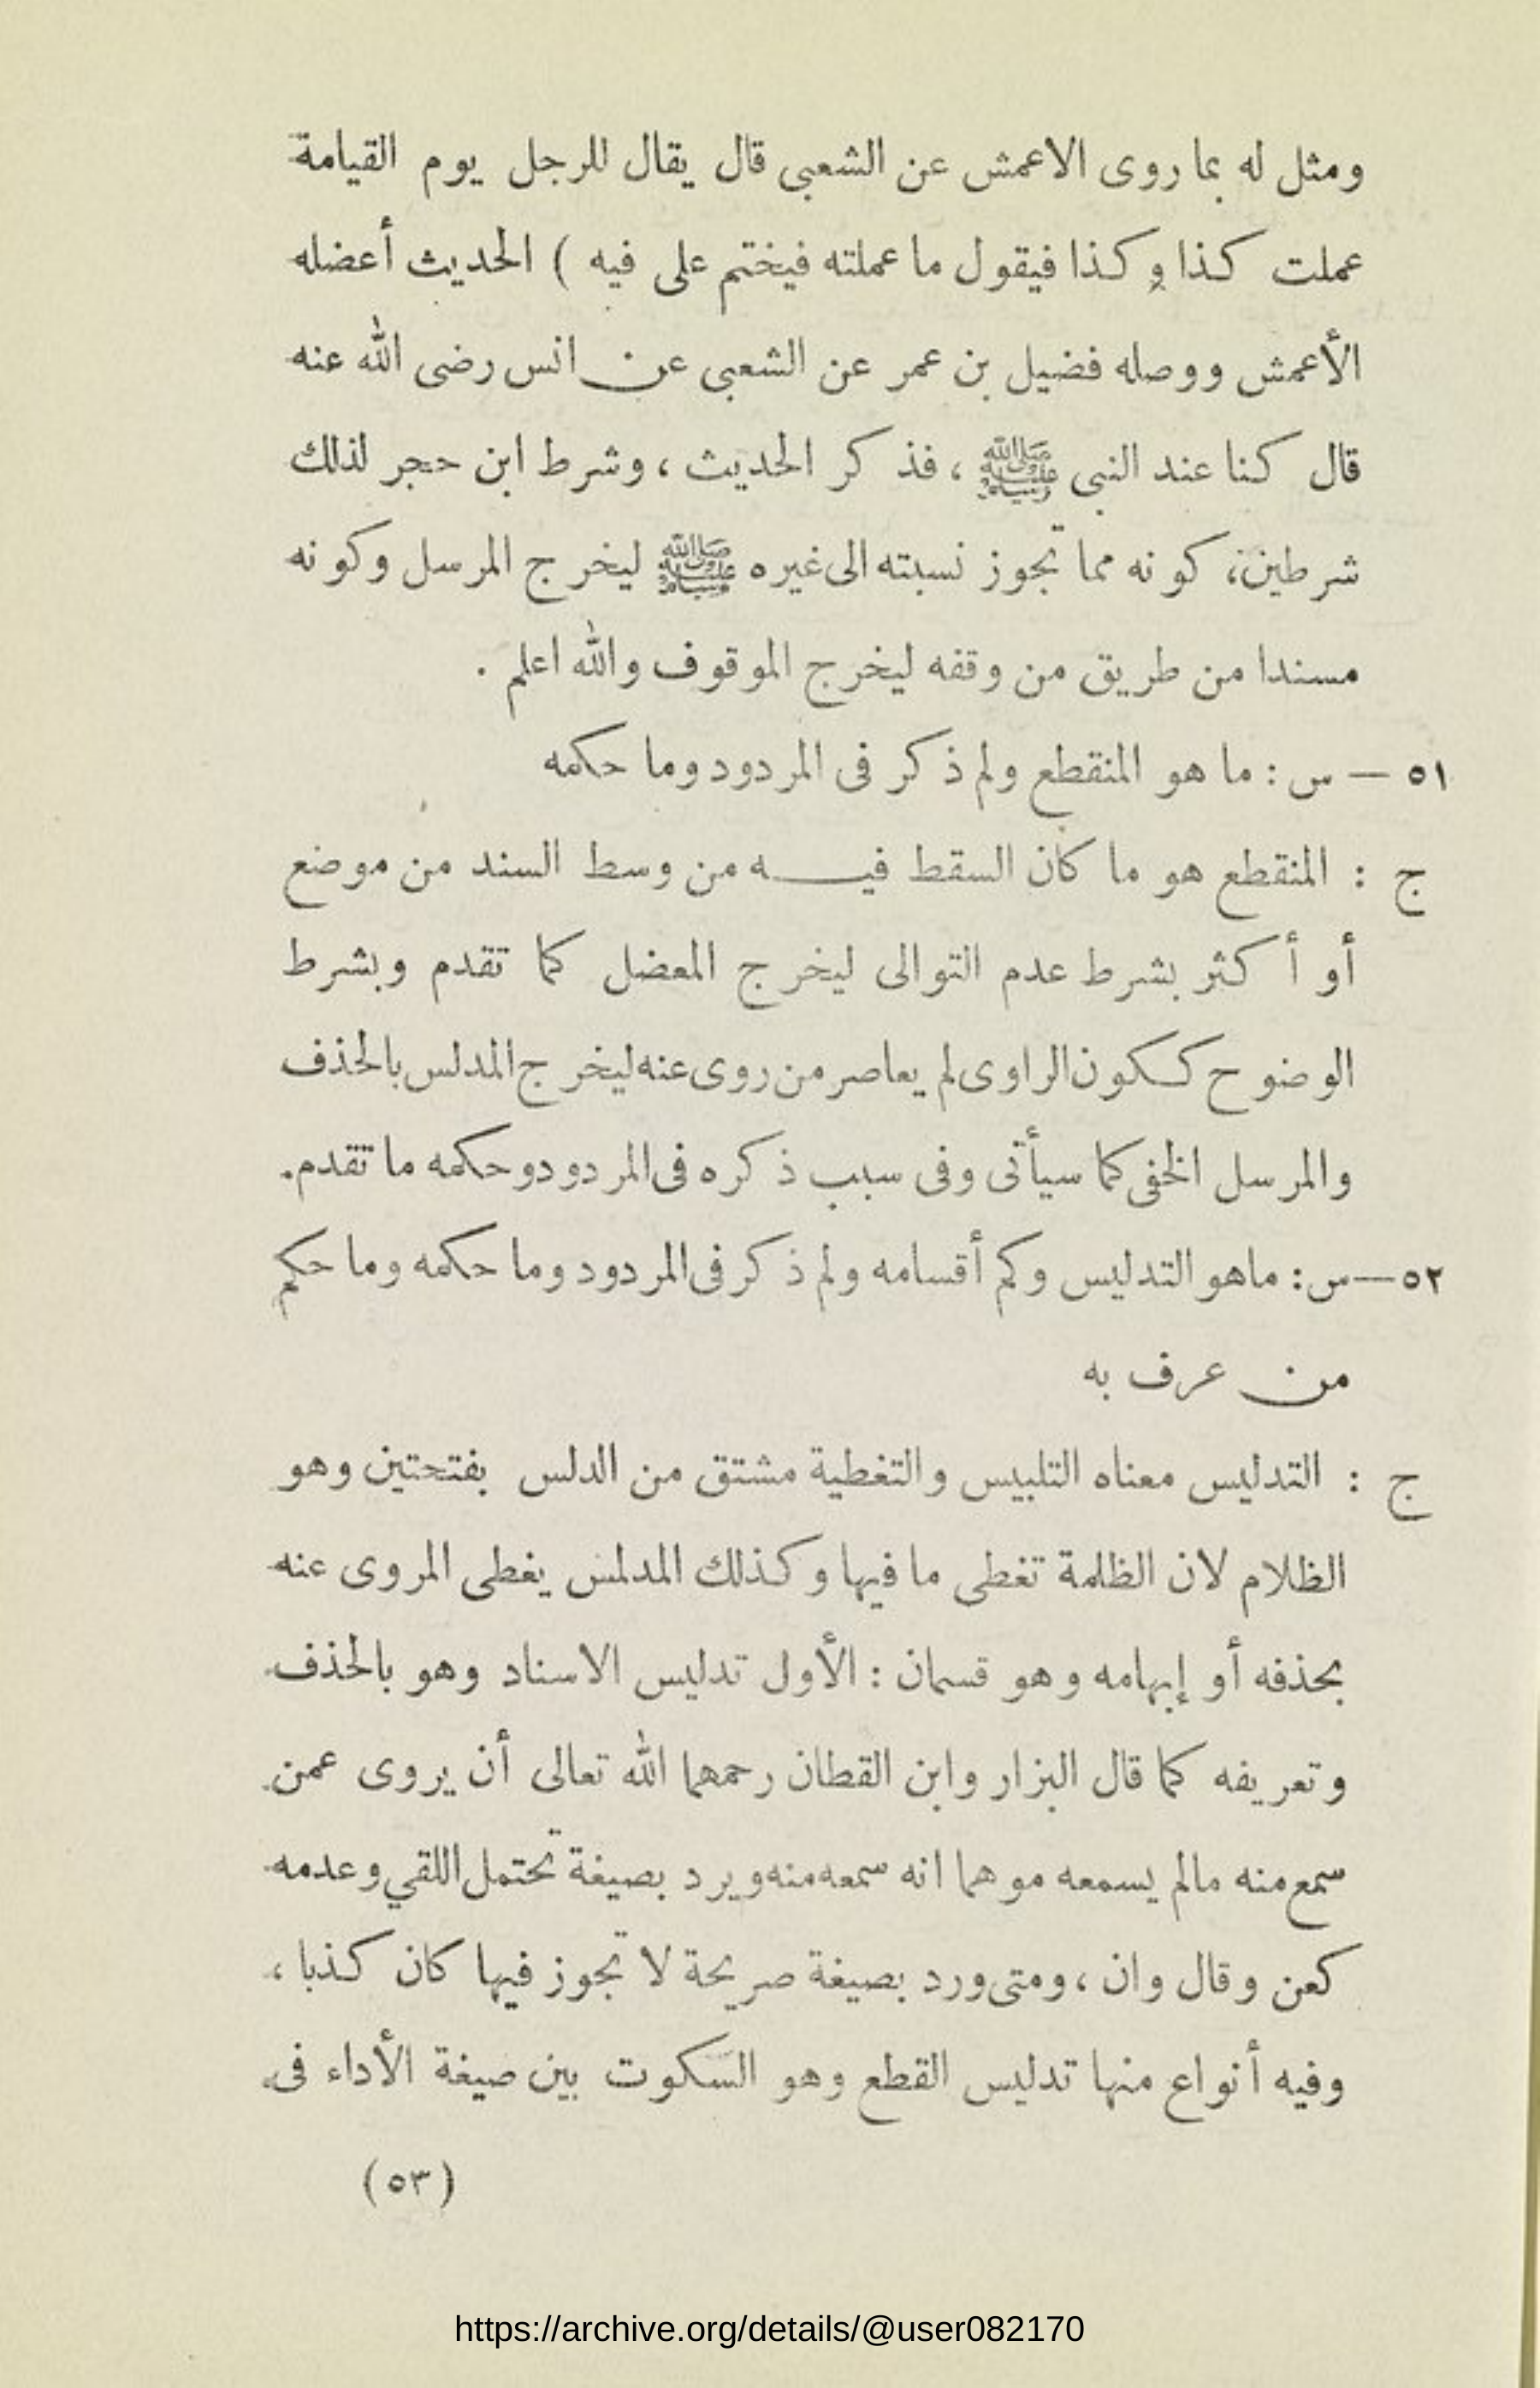 ومثل له بما روى الاعمش عن الشعبى قال يقال للرجل يوم القيامة
عملت كذا وكذا فيقول ما عملته فيختم على فيه ) الحديث أعضله
الأعمش ووصله فضيل بن عمر عن الشعبى عن انس رضى الله عنه
قال كنا عند النبى ﷺ ، فذكر الحديث ، وشرط ابن حجر لذلك
شرطين ، كونه مما تجوز نسبته الى غيره ﷺ ليخرج المرسل وكونه
مسندا من طريق من وقفه ليخرج الموقوف والله اعلم .
٥١ — س : ما هو المنقطع ولم ذكر فى المردود وما حكمه
ج : المنقطع هو ما كان السقط فيه من وسط السند من موضع
أو أكثر بشرط عدم التوالى ليخرج المعضل كما تقدم وبشرط
الوضوح ككون الراوى لم يعاصر من روى عنه ليخرج المدلس بالحذف
والمرسل الخفى كما سيأتى وفى سبب ذكره فى المردود وحكمه ما تقدم.
٥٢—س : ماهو التدليس وكم أقسامه ولم ذكر فى المردود وما حكمه وما حكم
من عرف به
ج : التدليس معناه التلبيس والتغطية مشتق من الدلس بفتحتين وهو
الظلام لان الظلمة تغطى ما فيها وكذلك المدلس يغطى المروى عنه
بحذفه أو إبهامه وهو قسمان : الأول تدليس الاسناد وهو بالحذف
وتعريفه كما قال البزار وابن القطان رحمهما الله تعالى أن يروى عمن
سمع منه مالم يسمعه موهما انه سمعه منه ويرد بصيغة تحتمل اللقي وعدمه
كعن وقال وان ، ومتى ورد بصيغة صريحة لا تجوز فيها كان كذبا ،
وفيه أنواع منها تدليس القطع وهو السكوت بين صيغة الأداء فى
(٥٣)
https://archive.org/details/@user082170